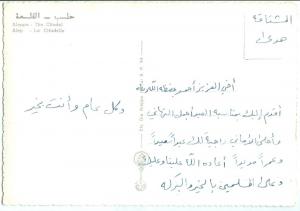 حلب - القلعة
Aleppo - The Citadel
Alep - La Citadelle
المشتاقة
هدى
أخي العزيز أحمد حفظه الله
أقدم إليك بمناسبة العيد أجمل التهاني
وأغلى الأماني راجية لك عيداً سعيداً
وعمراً مديداً أعاده الله علينا وعليك
وعلى المسلمين بالخير والبركة
وكل عام وأنت بخير